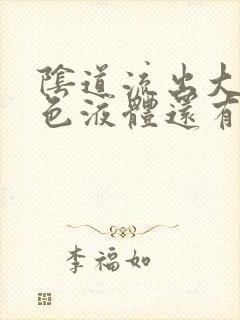 陰道流出大
色液體還有
李福如